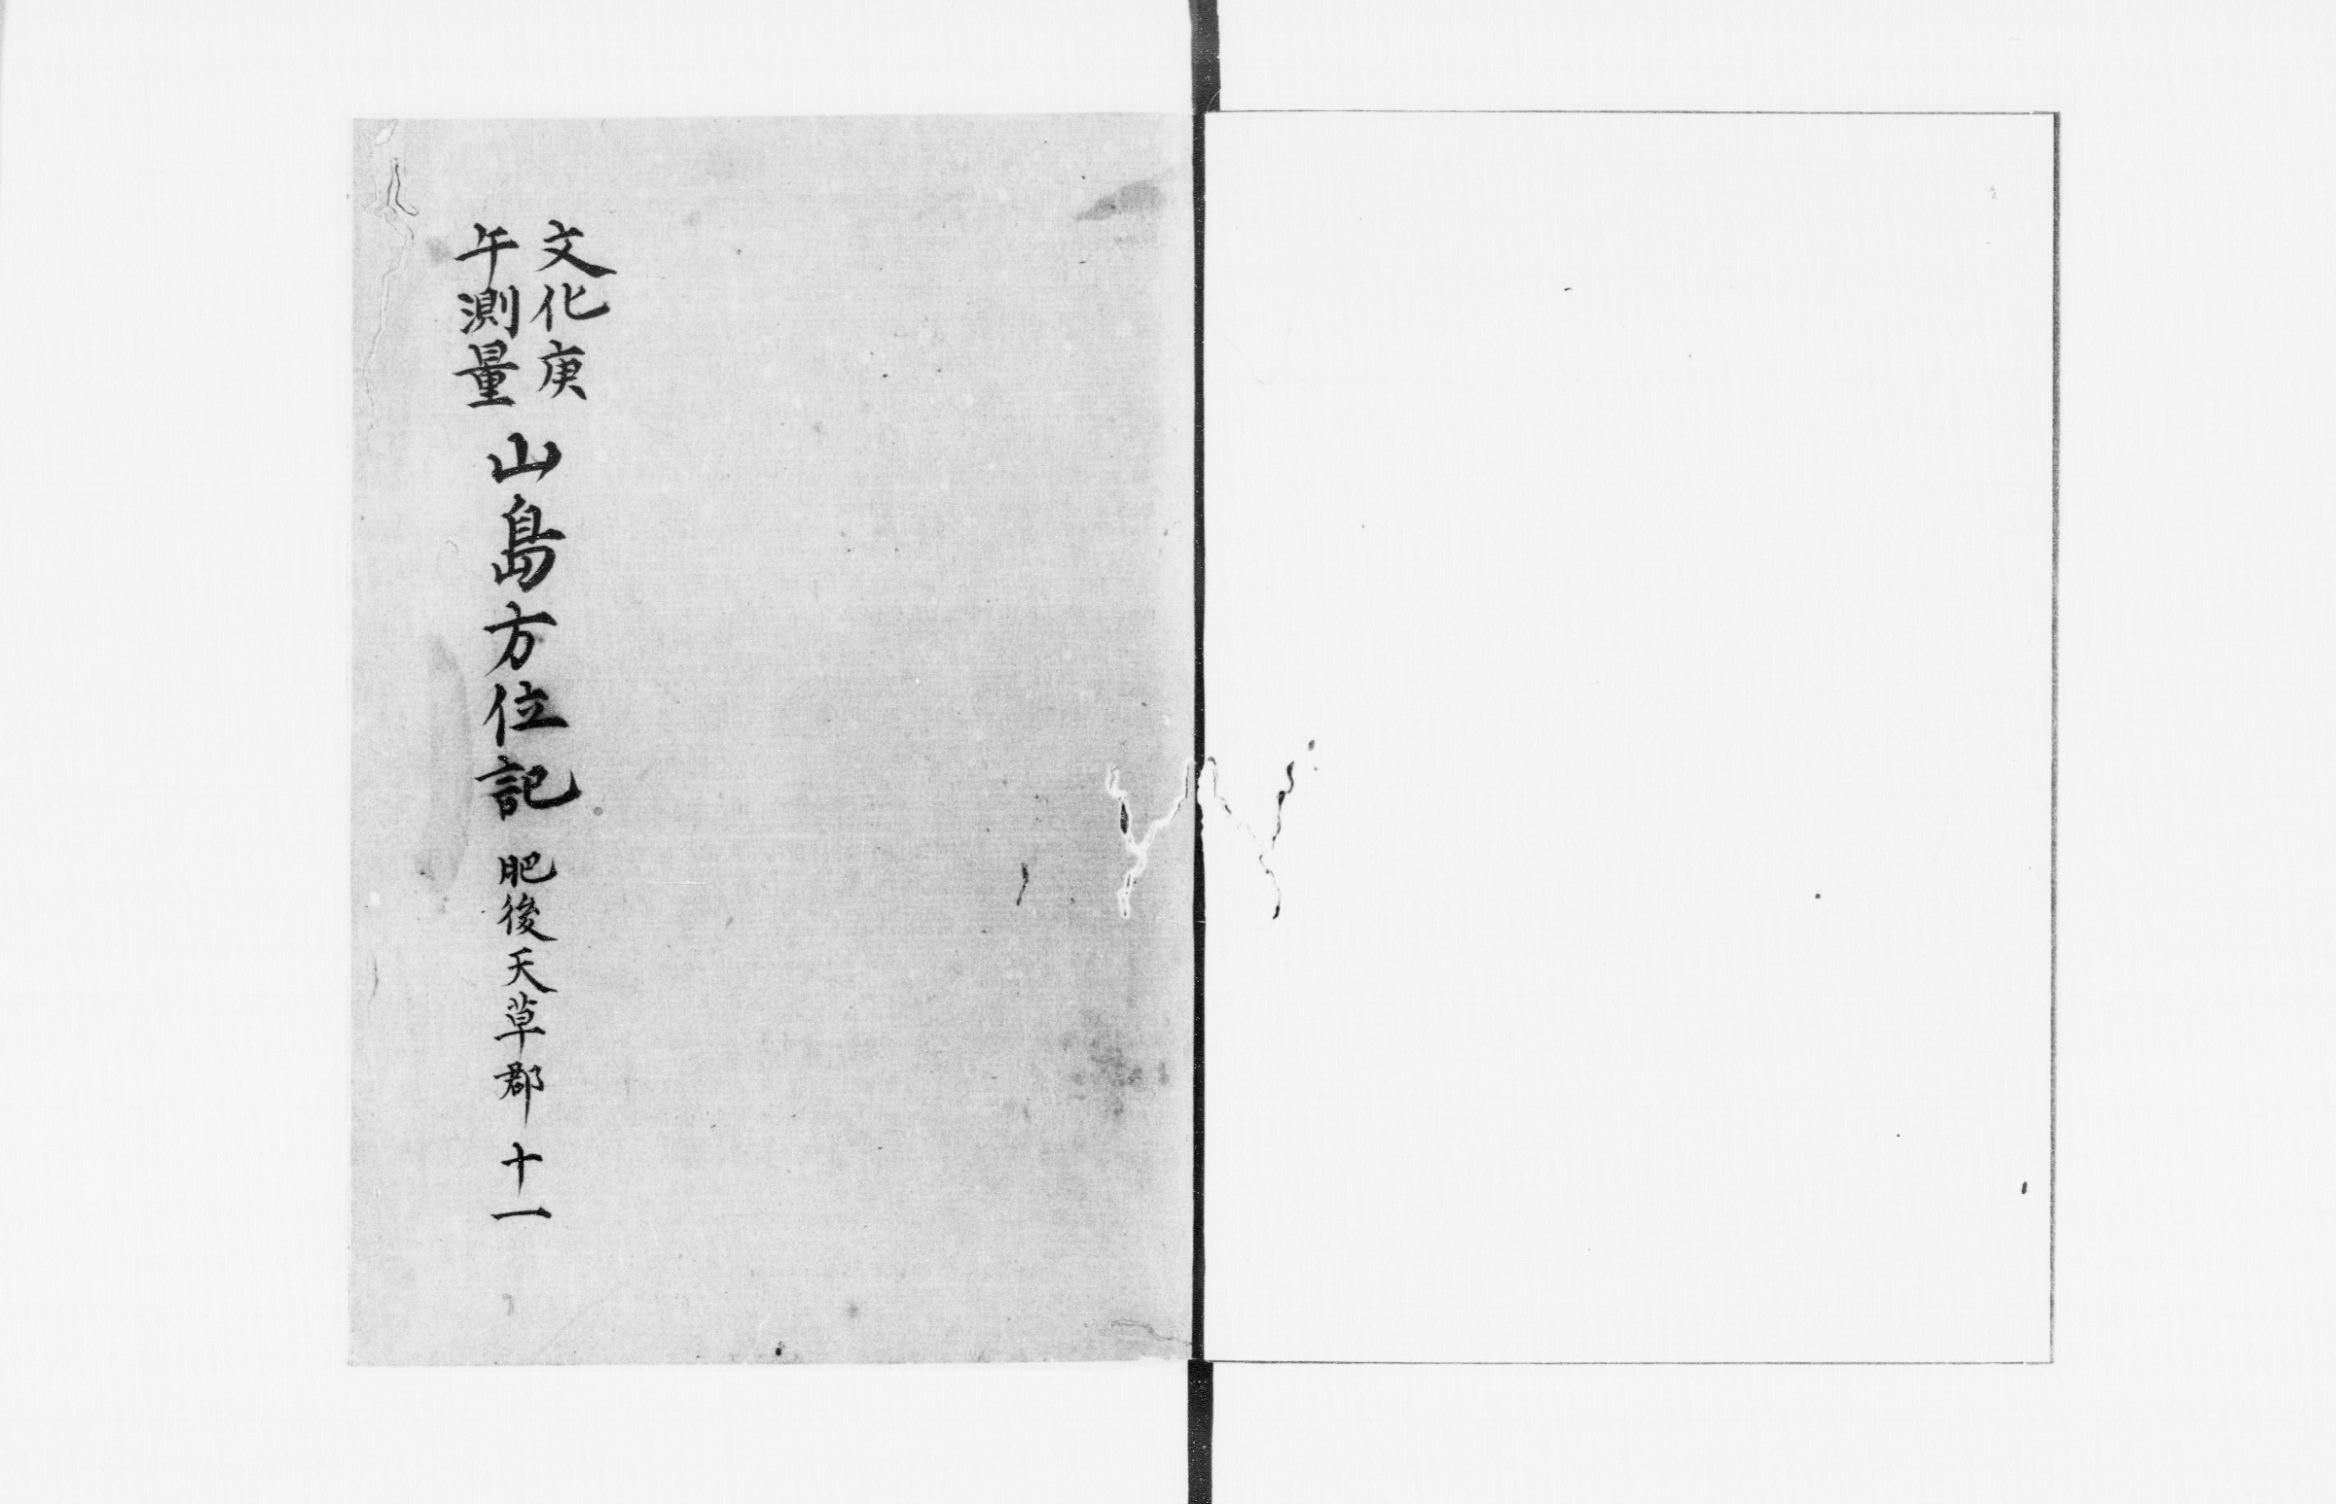 文化庚
午測量
山島方位記 肥後天草郡 十一